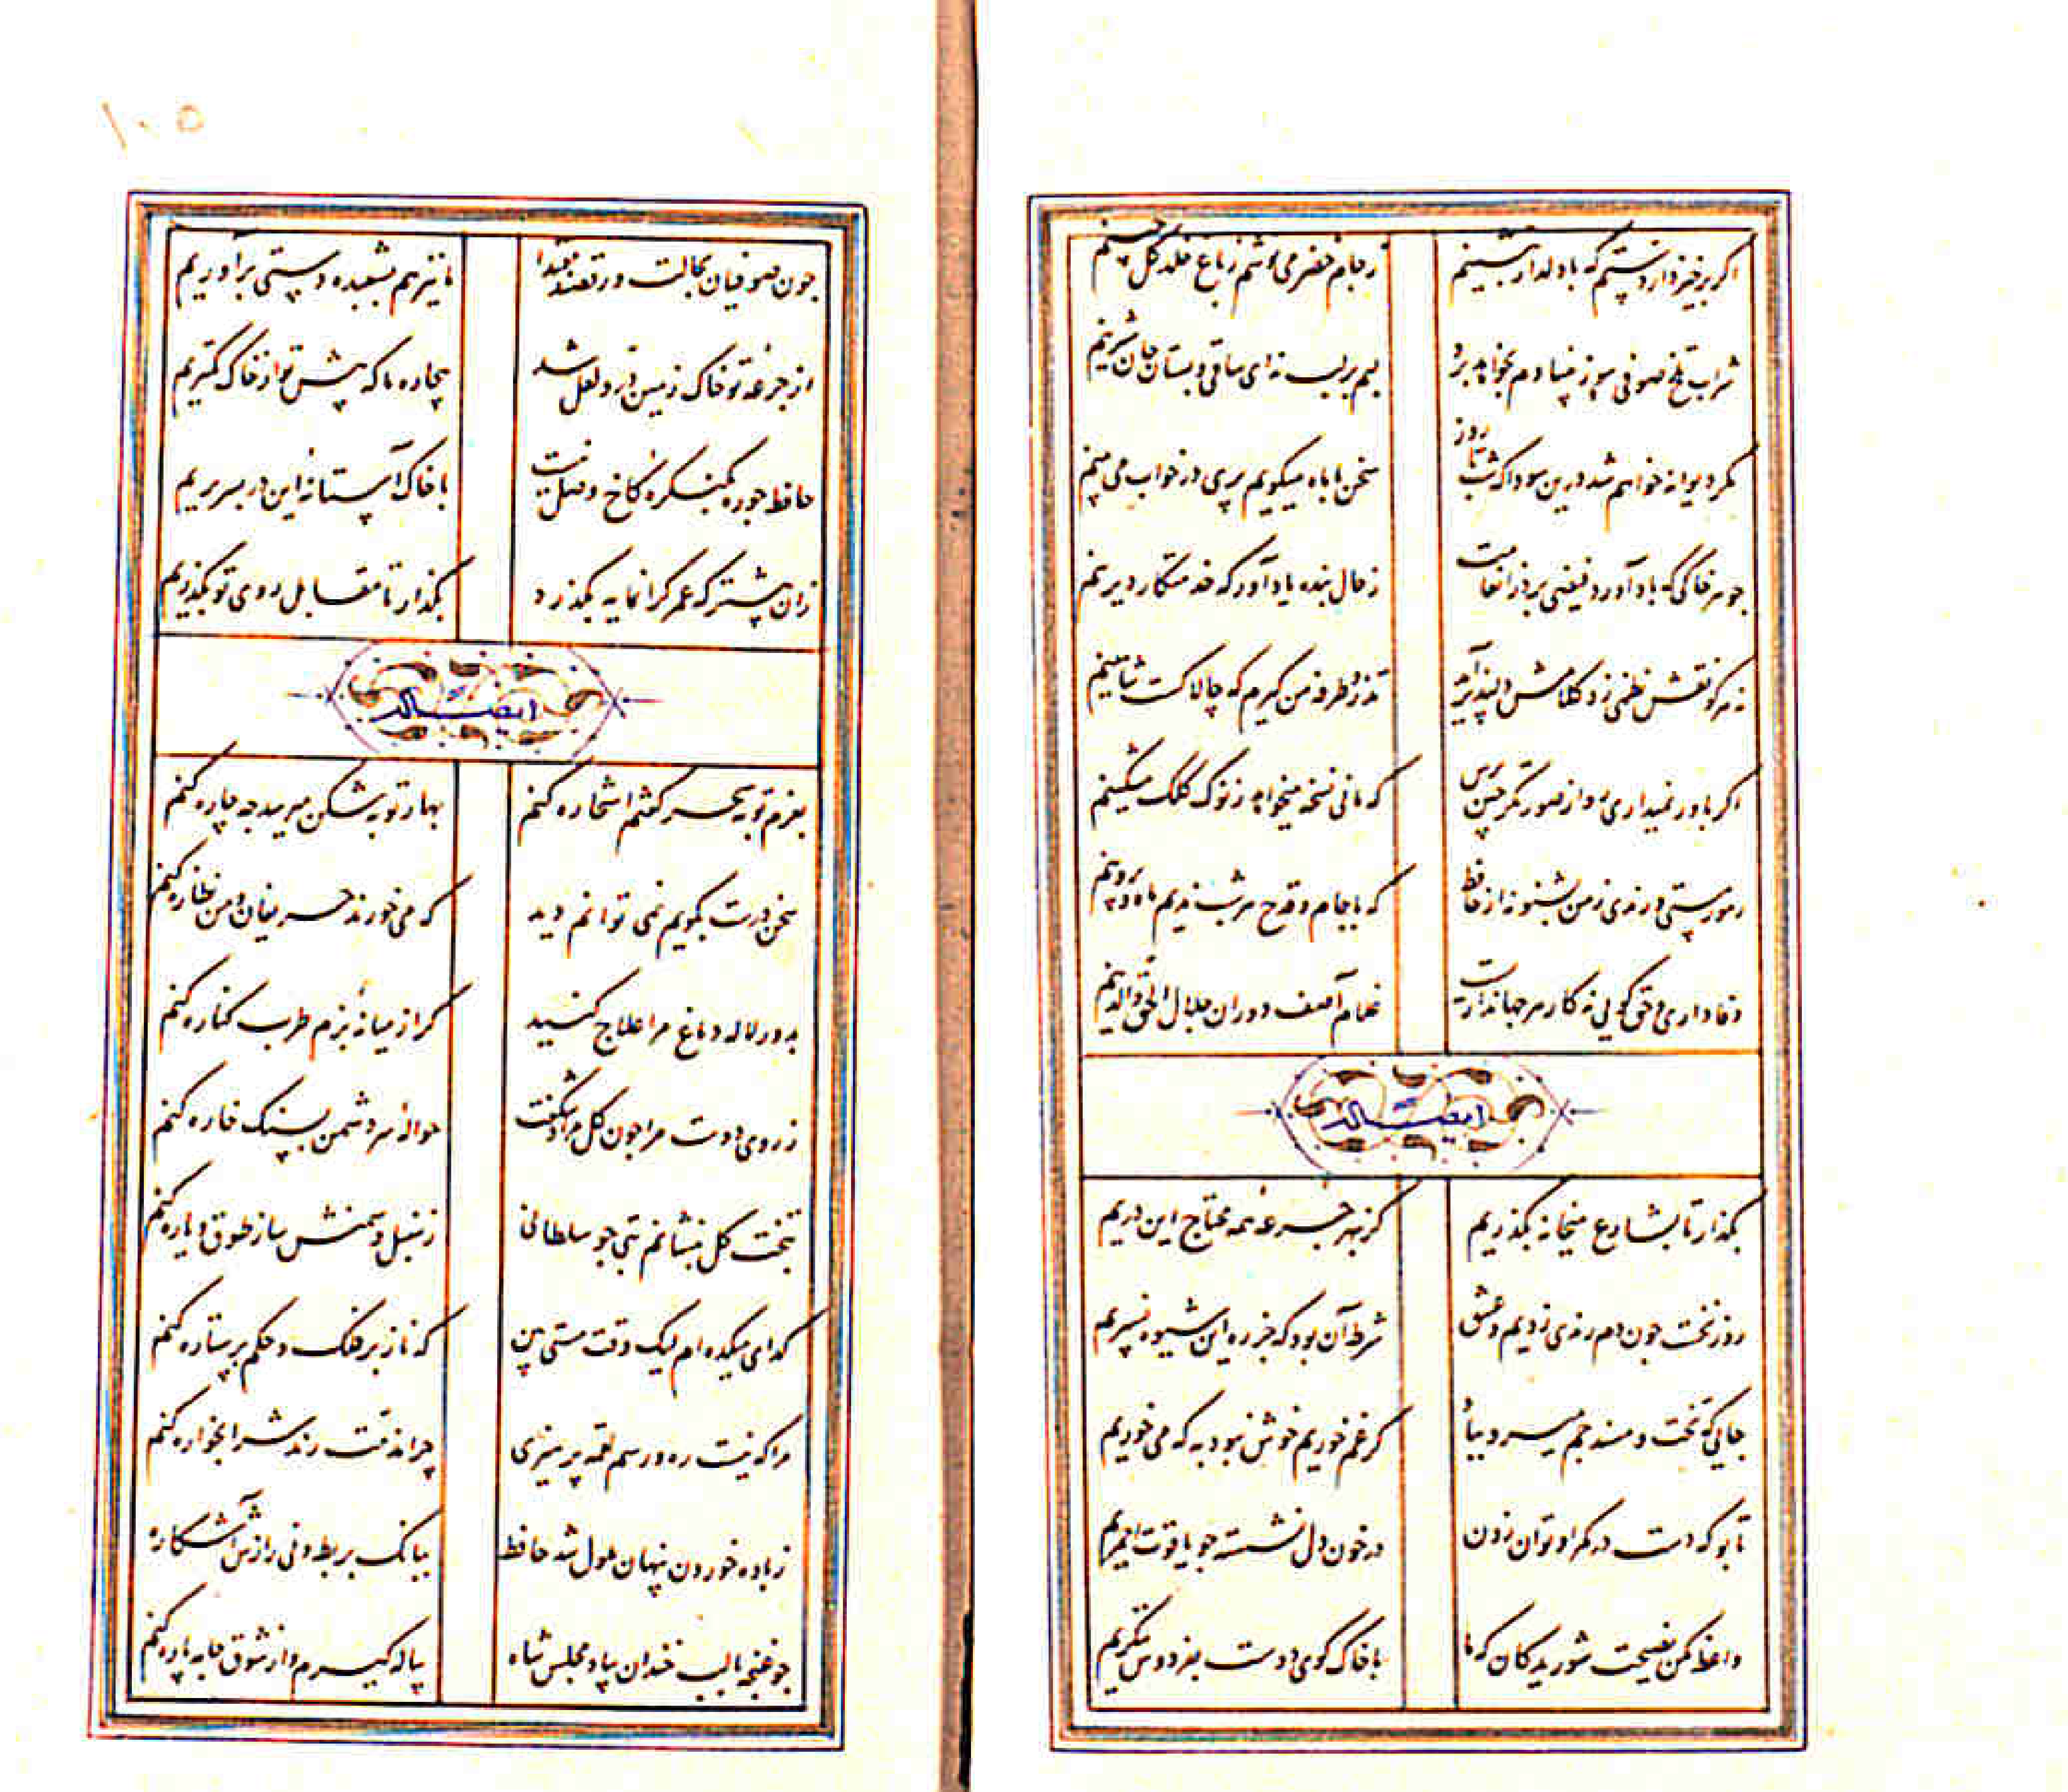 اگر برخیزد از دستم که با دلدار بنشینم
ز جام خضر می نوشم ز باغ خلد گل چینم
شراب تلخ صوفی سوز بنیادم بخواهد برد
لبم بر لب نه ای ساقی و بستان جان شیرینم
مگر دیوانه خواهم شد درین سودا که شب تا روز
سخن با ماه میگویم پری در خواب می بینم
جو هر خاکی که باد آورد فیضی برد از انعامت
ز حال بنده یاد آور که خدمتکار دیرینم
نه هر کو نقش نظمی زد کلامش دلپذیر آمد
تذرو طرفه من گیرم که چالاکست شاهینم
اگر باور نمیداری رو از صورتگر چین پرس
که مانی نسخه میخواهد ز نوک کلک مشکینم
رموز مستی و رندی ز من بشنو نه از حافظ
که با جام و قدح هر شب ندیم ماه و پروینم
وفاداری و حق گویی نه کار هر جهانداریست
غلام آصف دوران جلال الحق والدینم
ایضاً له
بگذار تا بشارع میخانه بگذریم
کز بهر جرعهٔ همه محتاج این دریم
روز نخست جون دم رندی زدیم و عشق
شرط آن بود که جز ره این شیوه نسپریم
جایی که تخت و مسند جم میرود بباد
گر غم خوریم خوش نبود به که می خوریم
تا بو که دست در کمر او توان زدن
در خون دل نشسته جو یاقوت احمریم
واعظ مکن نصیحت شوریدگان که ما
با خاک کوی دوست بفردوس ننگریم
۱۰۵
جون صوفیان بحالت و رقصند مقتدا
ما نیز هم بشعبده دستی برآوریم
از جرعهٔ تو خاک زمین در و لعل شد
بیچاره ما که پیش تو از خاک کمتریم
حافظ جو ره بکنکرهٔ کاخ وصل نیست
با خاک آستانهٔ این در بسر بریم
زان پیشتر که عمر گرانمایه بگذرد
بگذار تا مقابل روی تو بگذریم
ایضاً له
بعزم توبه سحر گفتم استخاره کنم
بهار توبه شکن میرسد جه چاره کنم
سخن درست بگویم نمی توانم دید
که می خورند حریفان و من نظاره کنم
بدور لاله دماغ مرا علاج کنید
گر از میانهٔ بزم طرب کناره کنم
ز روی دوست مرا جون گل مراد شکفت
حوالهٔ سر دشمن بسنگ خاره کنم
بتخت گل بنشانم بتی جو سلطانی
ز سنبل و سمنش ساز طوق و یاره کنم
گدای میکده ام لیک وقت مستی بین
که ناز بر فلک و حکم بر ستاره کنم
مرا که نیست ره و رسم لقمه پرهیزی
چرا مذمت رند شرابخواره کنم
ز باده خوردن پنهان ملول شد حافظ
ببانگ بربط و نی رازش آشکاره
جو غنچه با لب خندان بیاد مجلس شاه
پیاله گیرم و از شوق جامه پاره کنم